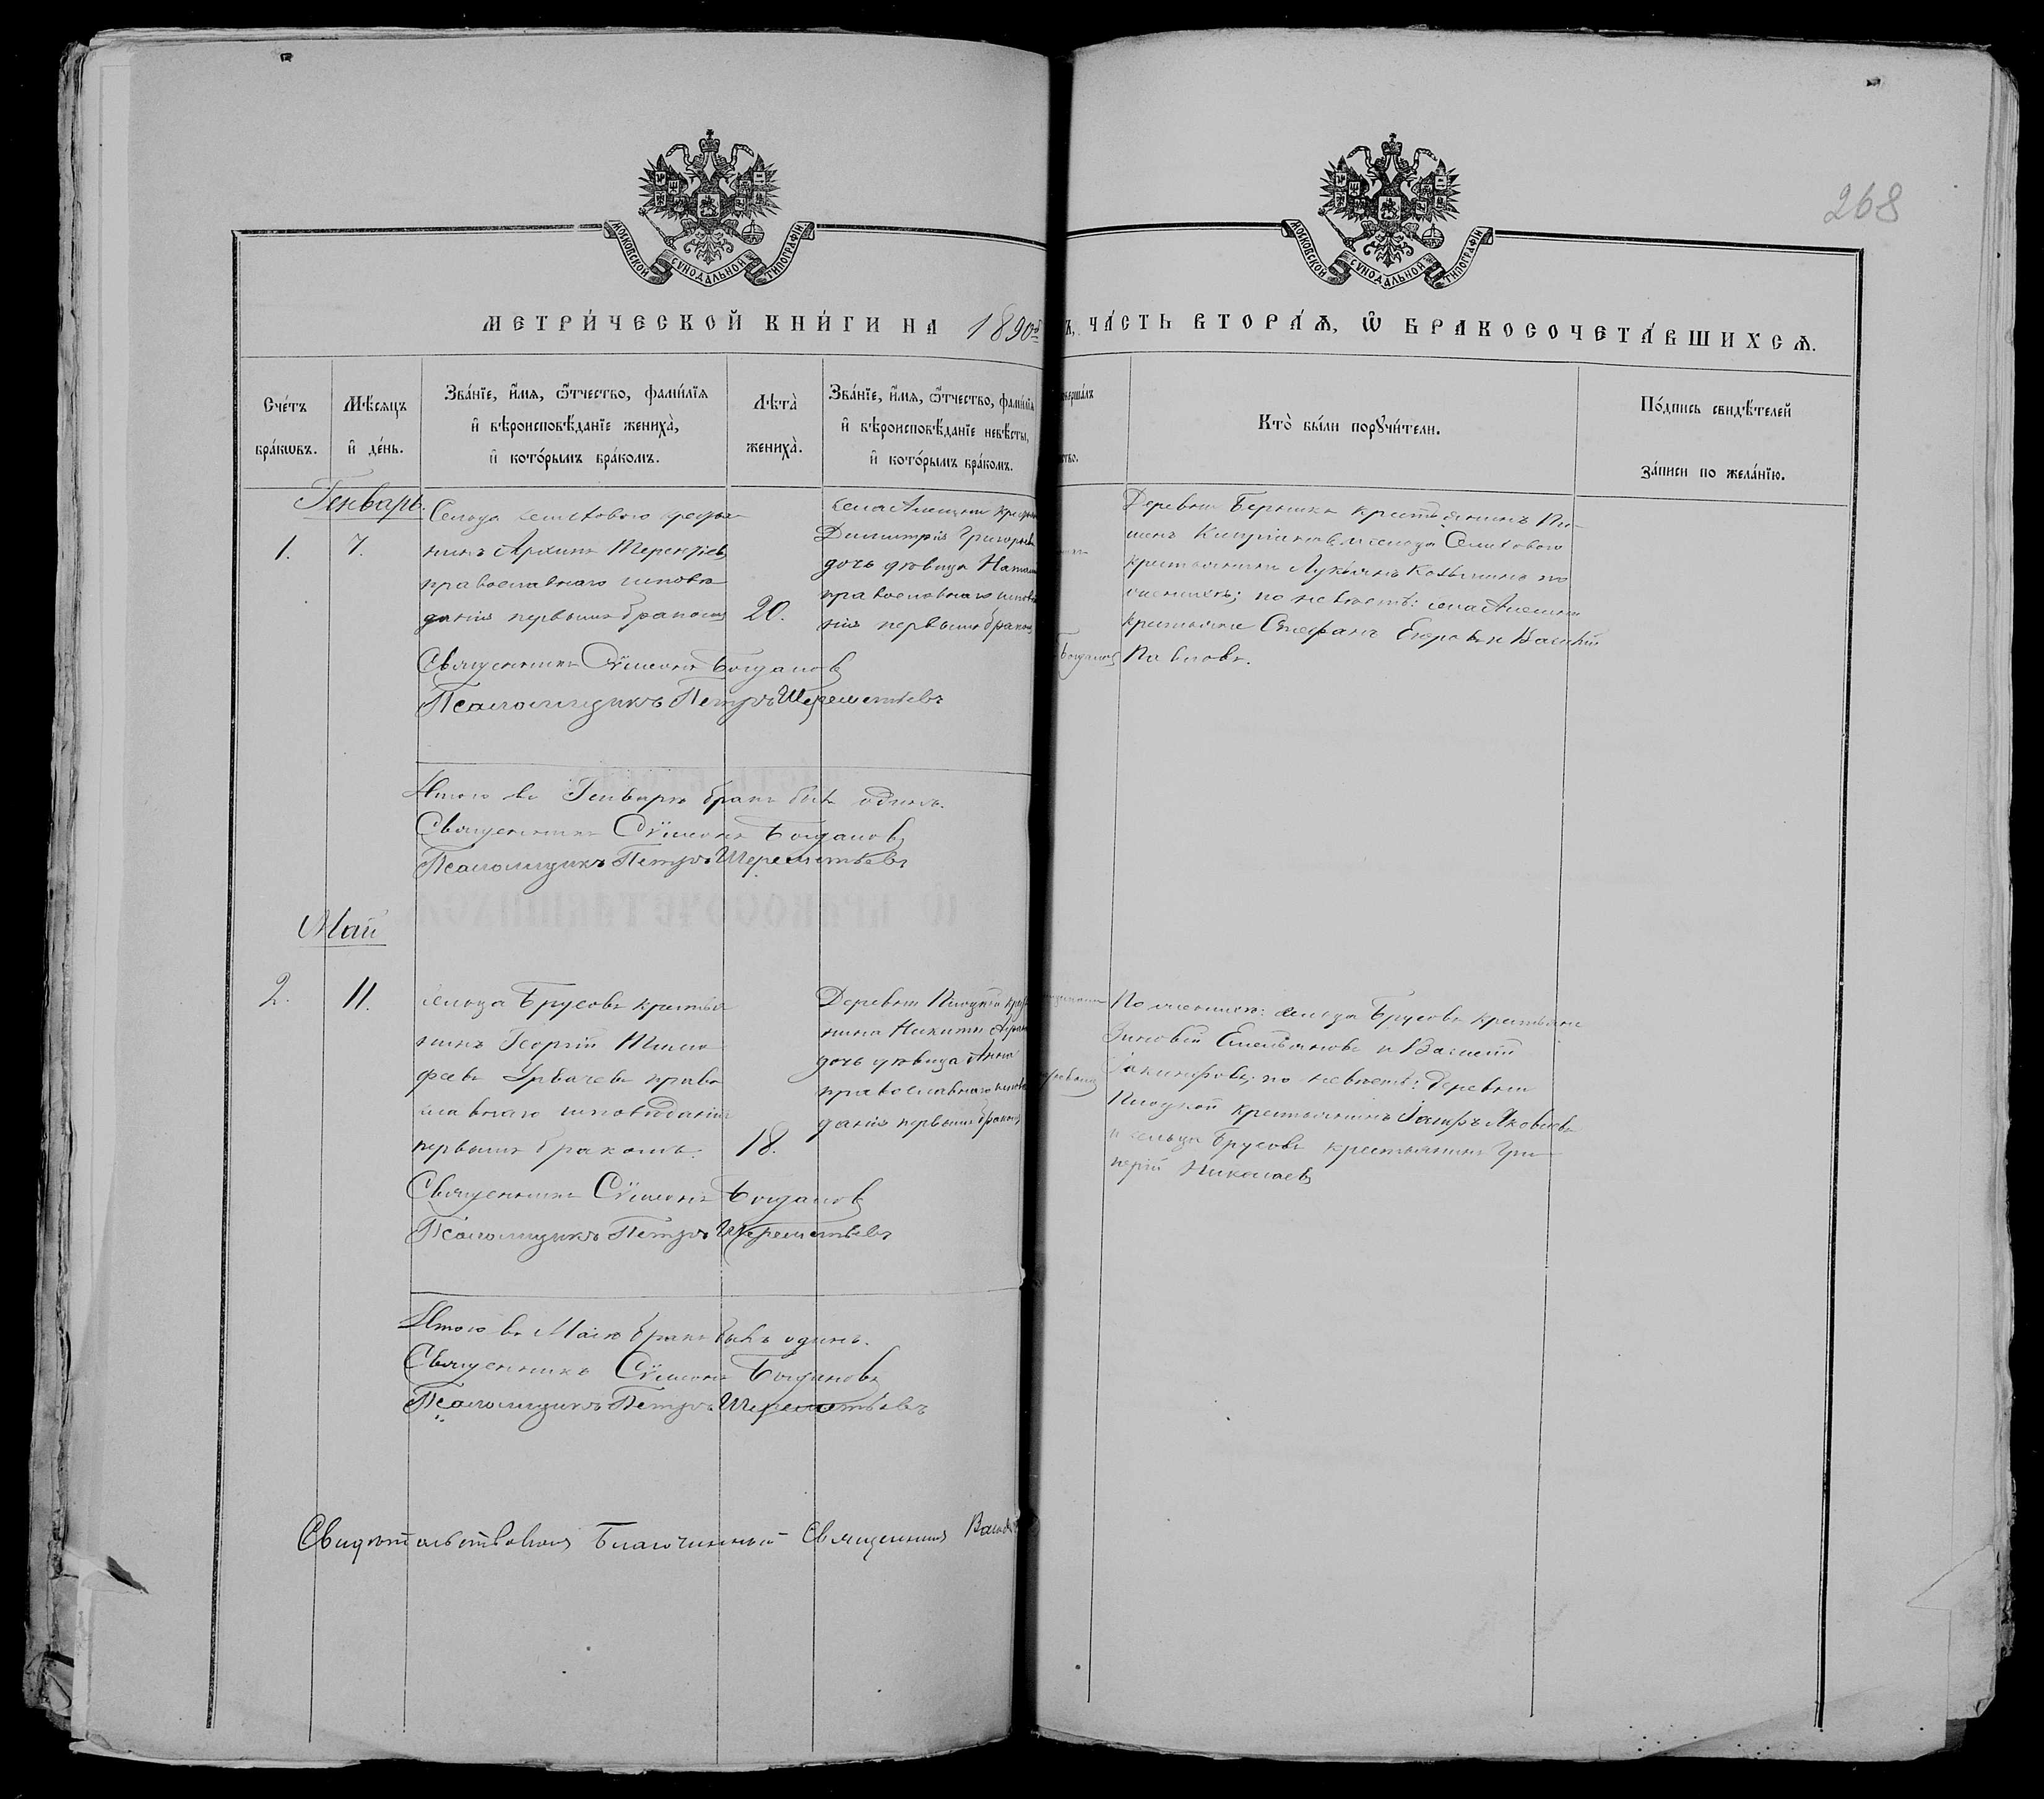 268
МОСКОВСКОЙ СѴНОДАЛЬНОЙ ТИПОГРАФІИ
МОСКОВСКОЙ СѴНОДАЛЬНОЙ ТИПОГРАФІИ
МЕТРИ́ЧЕСКОЙ КНИ́ГИ НА 1890й
Ъ, ЧА́СТЬ ВТОРА́Ѧ, Ѽ БРАКОСОЧЕТА́ВШИХСѦ.
Сче́тъ
бра́кѡвъ.
Мѣ́сѧцъ
и҆ де́нь.
Зва́нїе, и҆́мѧ, ѻ҆́тчество, фами́лїѧ
и҆ вѣроисповѣ́данїе жениха̀,
и҆ кото́рымъ бра́комъ.
Лѣ́та
жениха̀.
Зва́нїе, и҆́мѧ, ѻ҆́тчество, фами́лїѧ
и҆ вѣроисповѣ́данїе невѣ́сты,
и҆ кото́рымъ бра́комъ.
Кто̀ бы́ли порꙋчи́тели.
По́дпись свидѣ́телей
за́писи по жела́нїю.
Генварь.
1.
7.
Сельца Семихового кресть
нинъ Архипъ Терентіевъ
православнаго исповѣ
данія первымъ бракомъ
20.
Димитрія Григорьева
дочь дѣвица
православнаго
нія первымъ бракомъ
Деревни крестьянинъ
и сельца Семихового
крестьянинъ Лукьянъ по
женихѣ; по невѣстѣ: села
крестьяне Стефанъ Егоровъ и Василій
Богдановъ
Павловъ.
Священникъ Сѵмеонъ Богдановъ
Псаломщикъ Петръ Шереметьевъ
Итого въ Генварѣ бракъ былъ одинъ.
Священникъ Сѵмеонъ Богдановъ
Псаломщикъ Петръ Шереметьевъ
Май
2.
11.
сельца Брусовъ крестья
нинъ Георгій Тимо
феевъ право
славнаго исповѣданія
первымъ бракомъ.
18.
Деревни
нина Никиты
дочь дѣвица Анна
православнаго исповѣ
данія первымъ бракомъ
По женихѣ: сельца Брусовъ крестьяне
Зиновій Емельяновъ и Василій
по невѣстѣ: деревни
крестьянинъ Яковлевъ
и сельца Брусовъ крестьянинъ
Николаевъ
Священникъ Сѵмеонъ Богдановъ
Псаломщикъ Петръ Шереметьевъ
Итого въ Маіѣ бракъ былъ одинъ.
Священникъ Сѵмеонъ Богдановъ
Псаломщикъ Петръ Шереметьевъ
Свидѣтельствовалъ Благочинный Священникъ